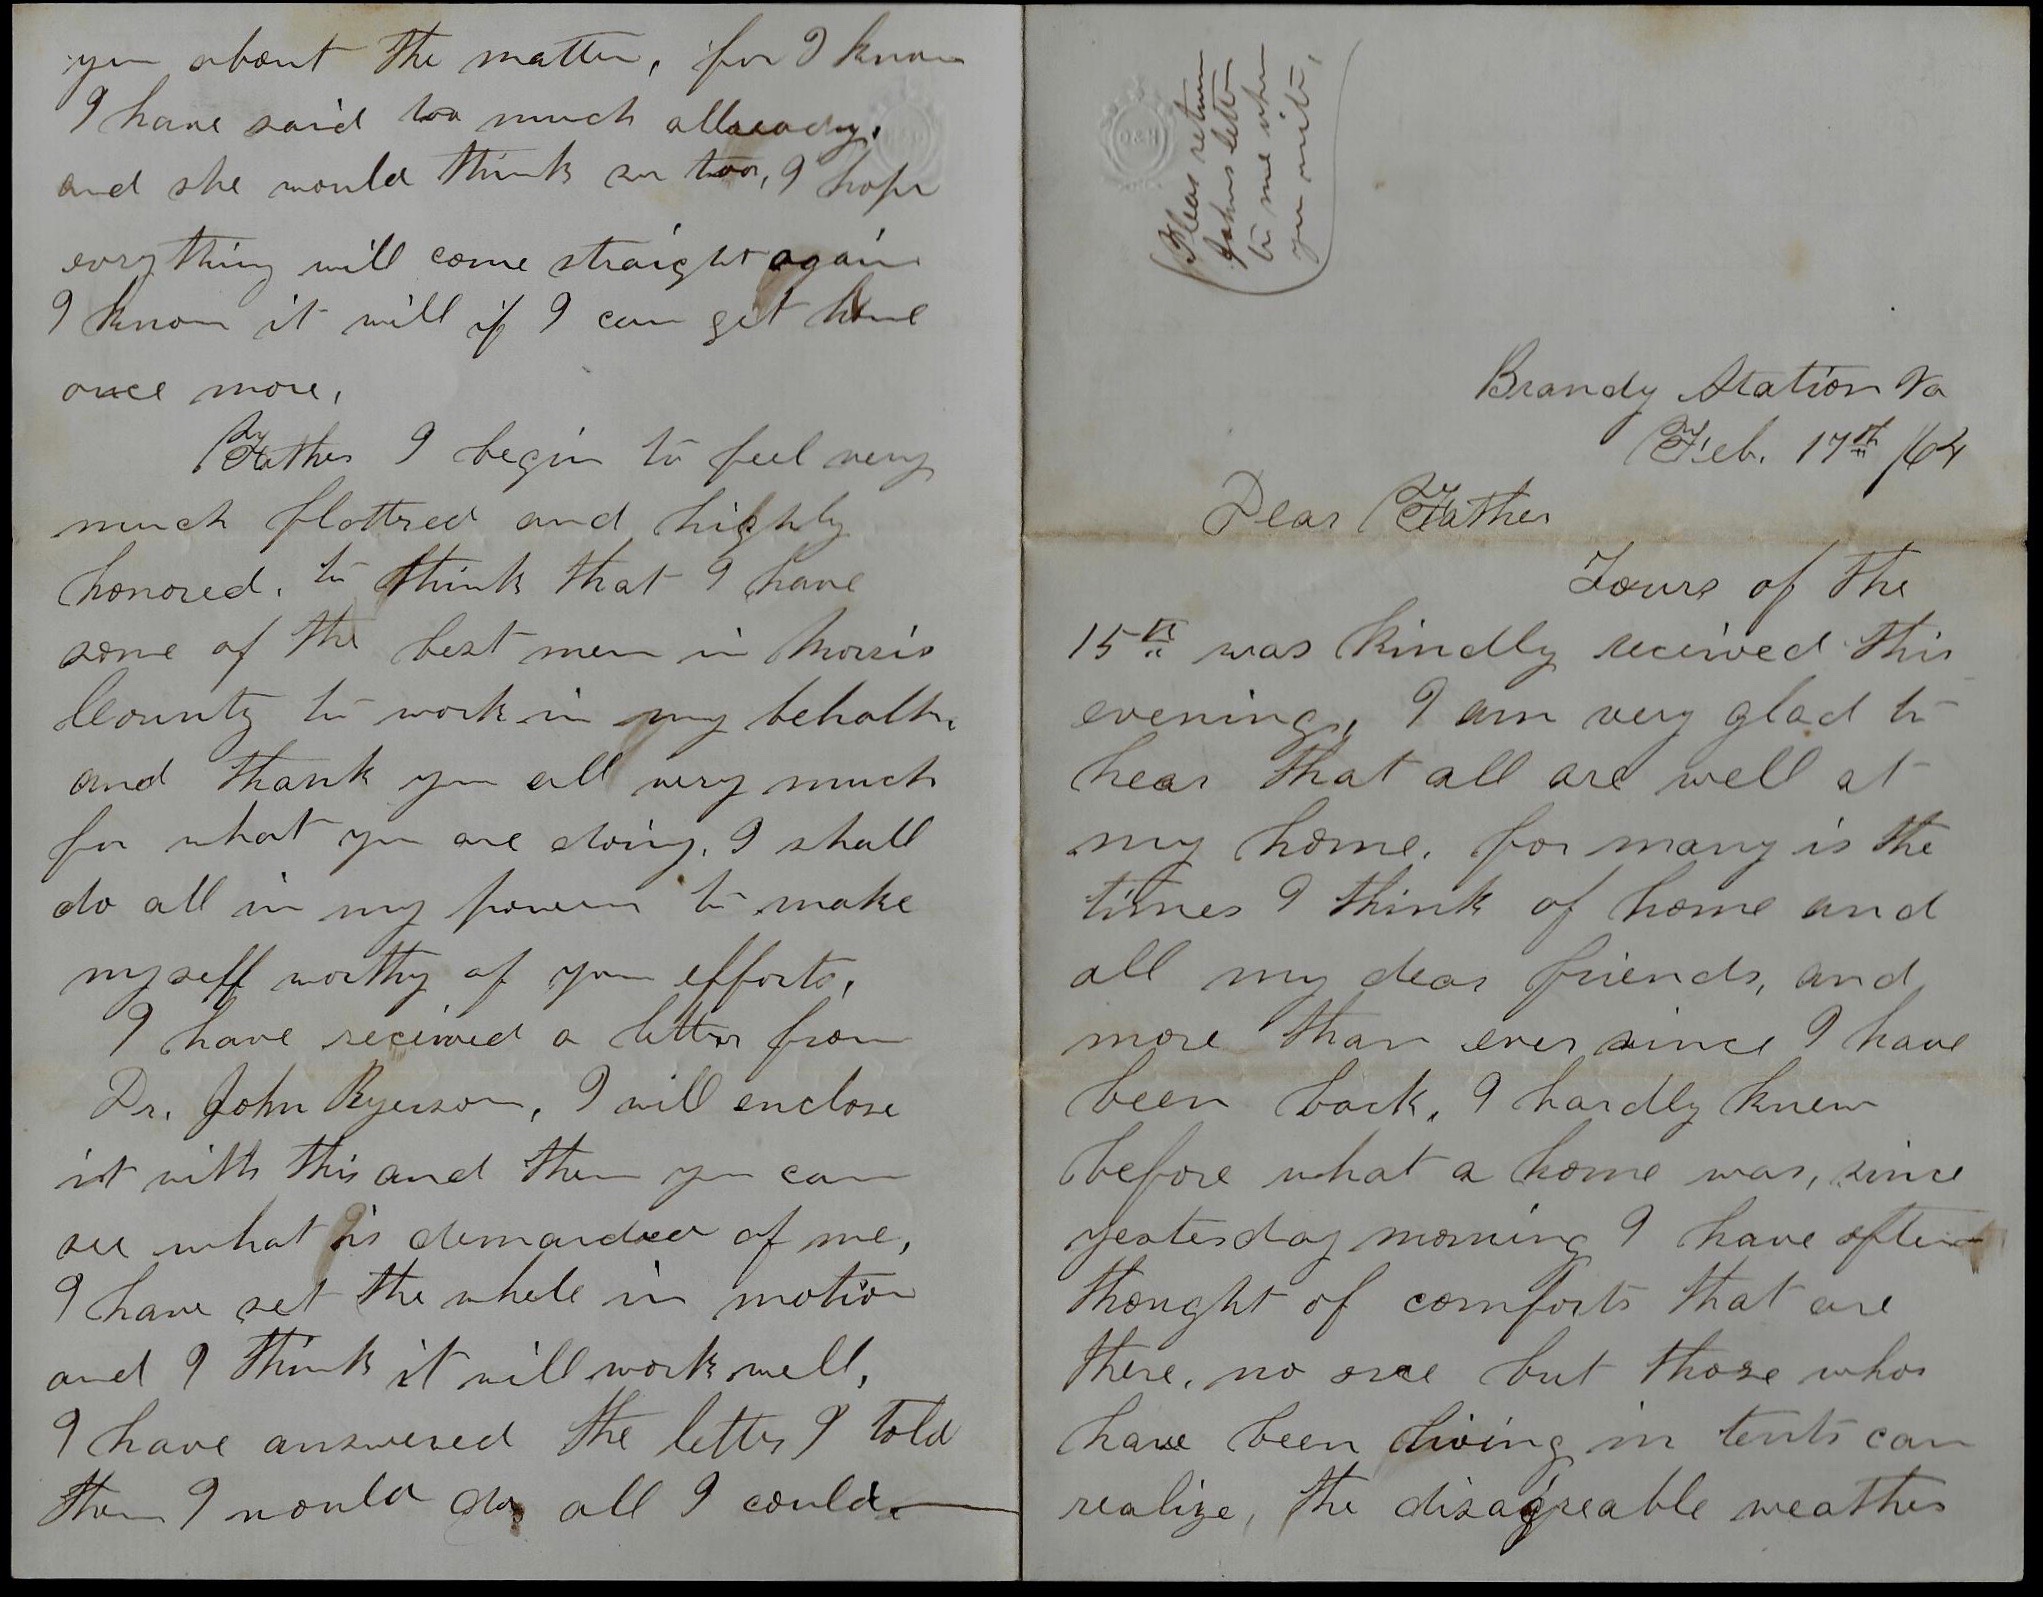 (Pleas return
Johns letter
to me when
you write,
Brandy Station Va
Feb. 17th /64
Dear Father
Yours of the
15th was kindly received this
evening, I am very glad to
hear that all are well at
my home. for many is the
times I think of home and
all my dear friends, and
more than ever since I have
been back. I hardly knew
before what a home was, since
yesterday morning I have often
thought of comforts that are
there. no one but those who
have been living in tents can
realize, the disagreable weather
you about the matter, for I know
I have said too much allready.
and she would think so too, I hope
evrything will come straight again
I know it will if I can get home
once more,
Father I begin to feel very
much flattred and highly
honored. to think that I have
some of the best men in Morris
County to work in my behalf.
and thank you all very much
for what you are doing. I shall
do all in my power to make
myself worthy of your efforts,
I have received a letter from
Dr. John Ryerson, I will enclose
it with this and then you can
see what is demanded of me,
I have set the whole in motion
and I think it will work well,
I have answered the letter I told
them I would do all I could.